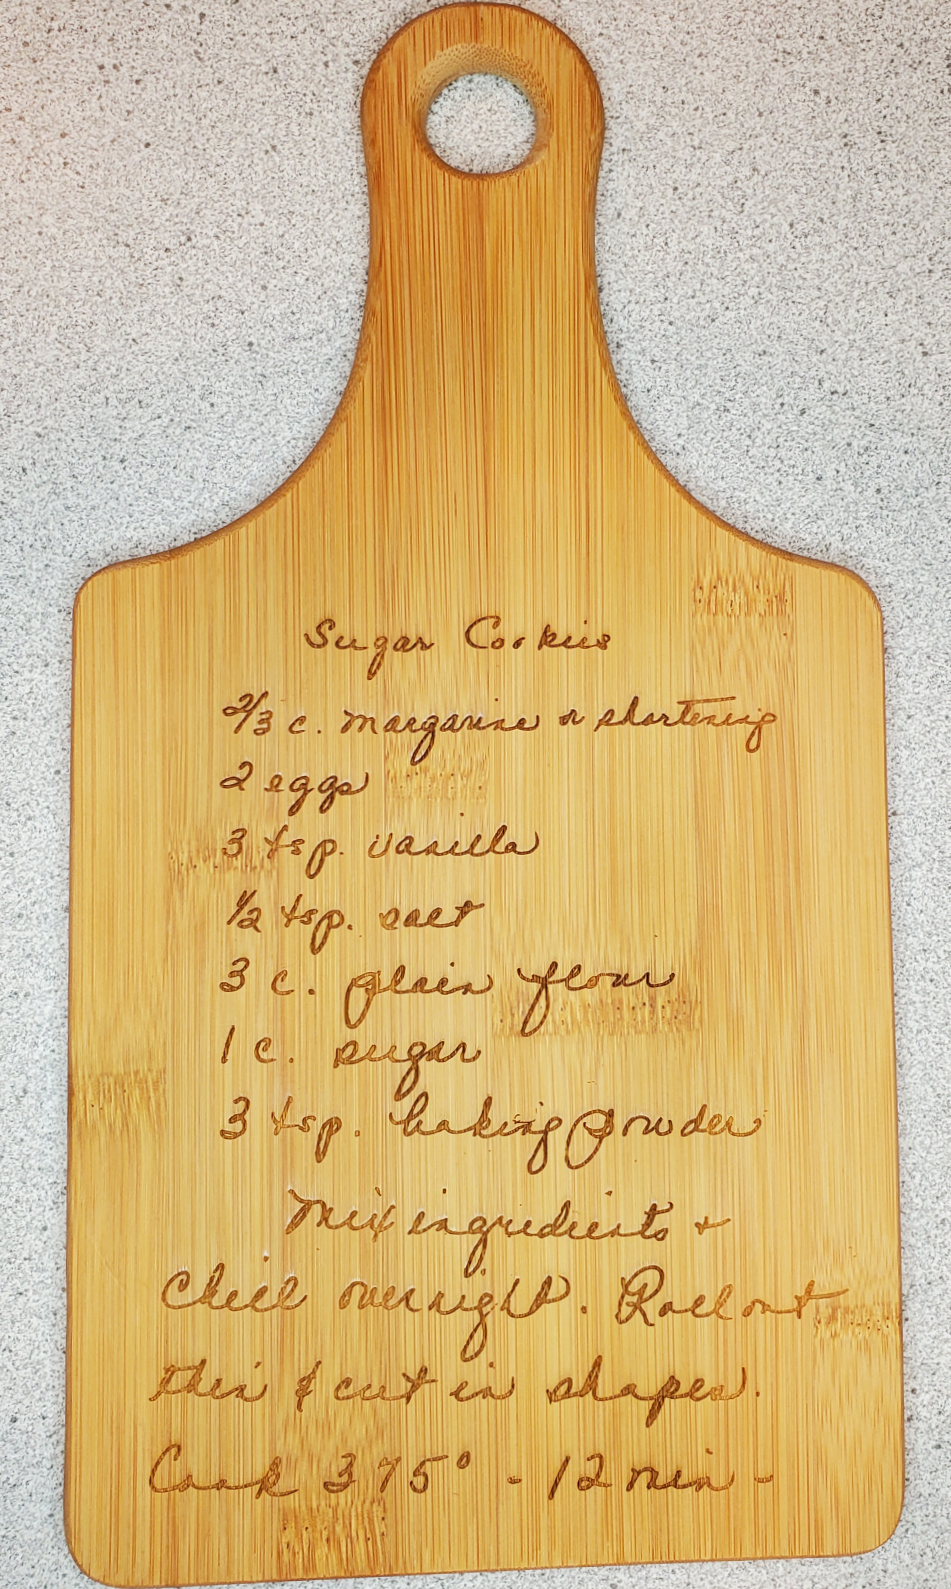 Sugar Cookies
2/3 c. margarine or shortening
2 eggs
3 tsp. vanilla
1/2 tsp. salt
3 c. plain flour
1 c. sugar
3 tsp. baking powder
Mix ingredients +
Chill overnight. Roll out
thin & cut in shapes.
Cook 375° - 12 min -